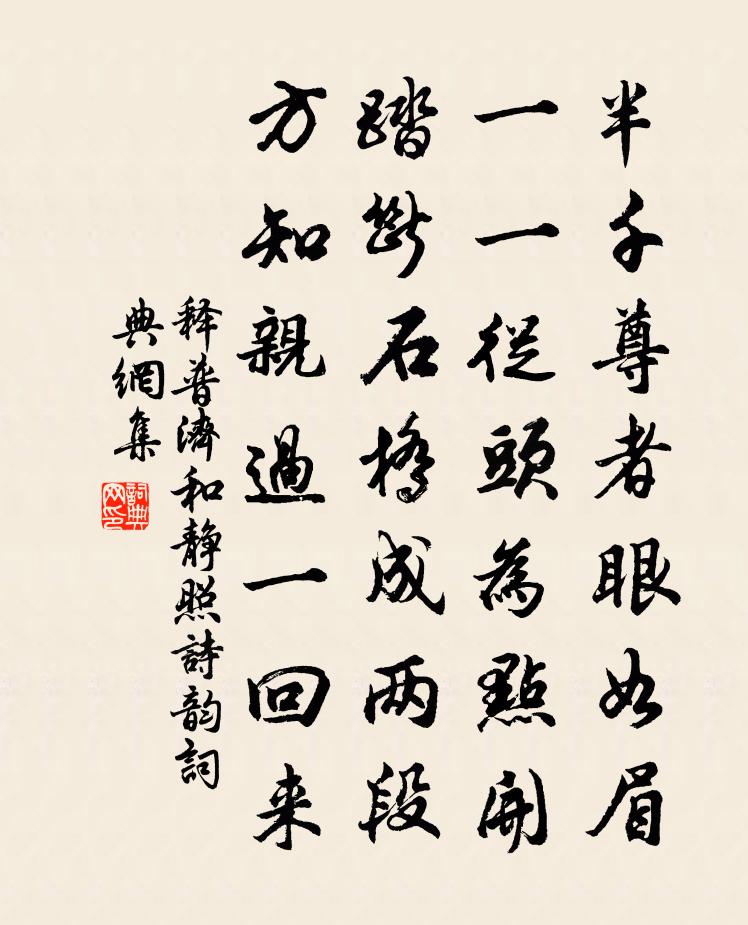 半千尊者眼如眉
一一從頭為點開
踏斷石橋成两段
方知親過一回来
释普濟和靜照詩韵詞
典網集
詞典网印